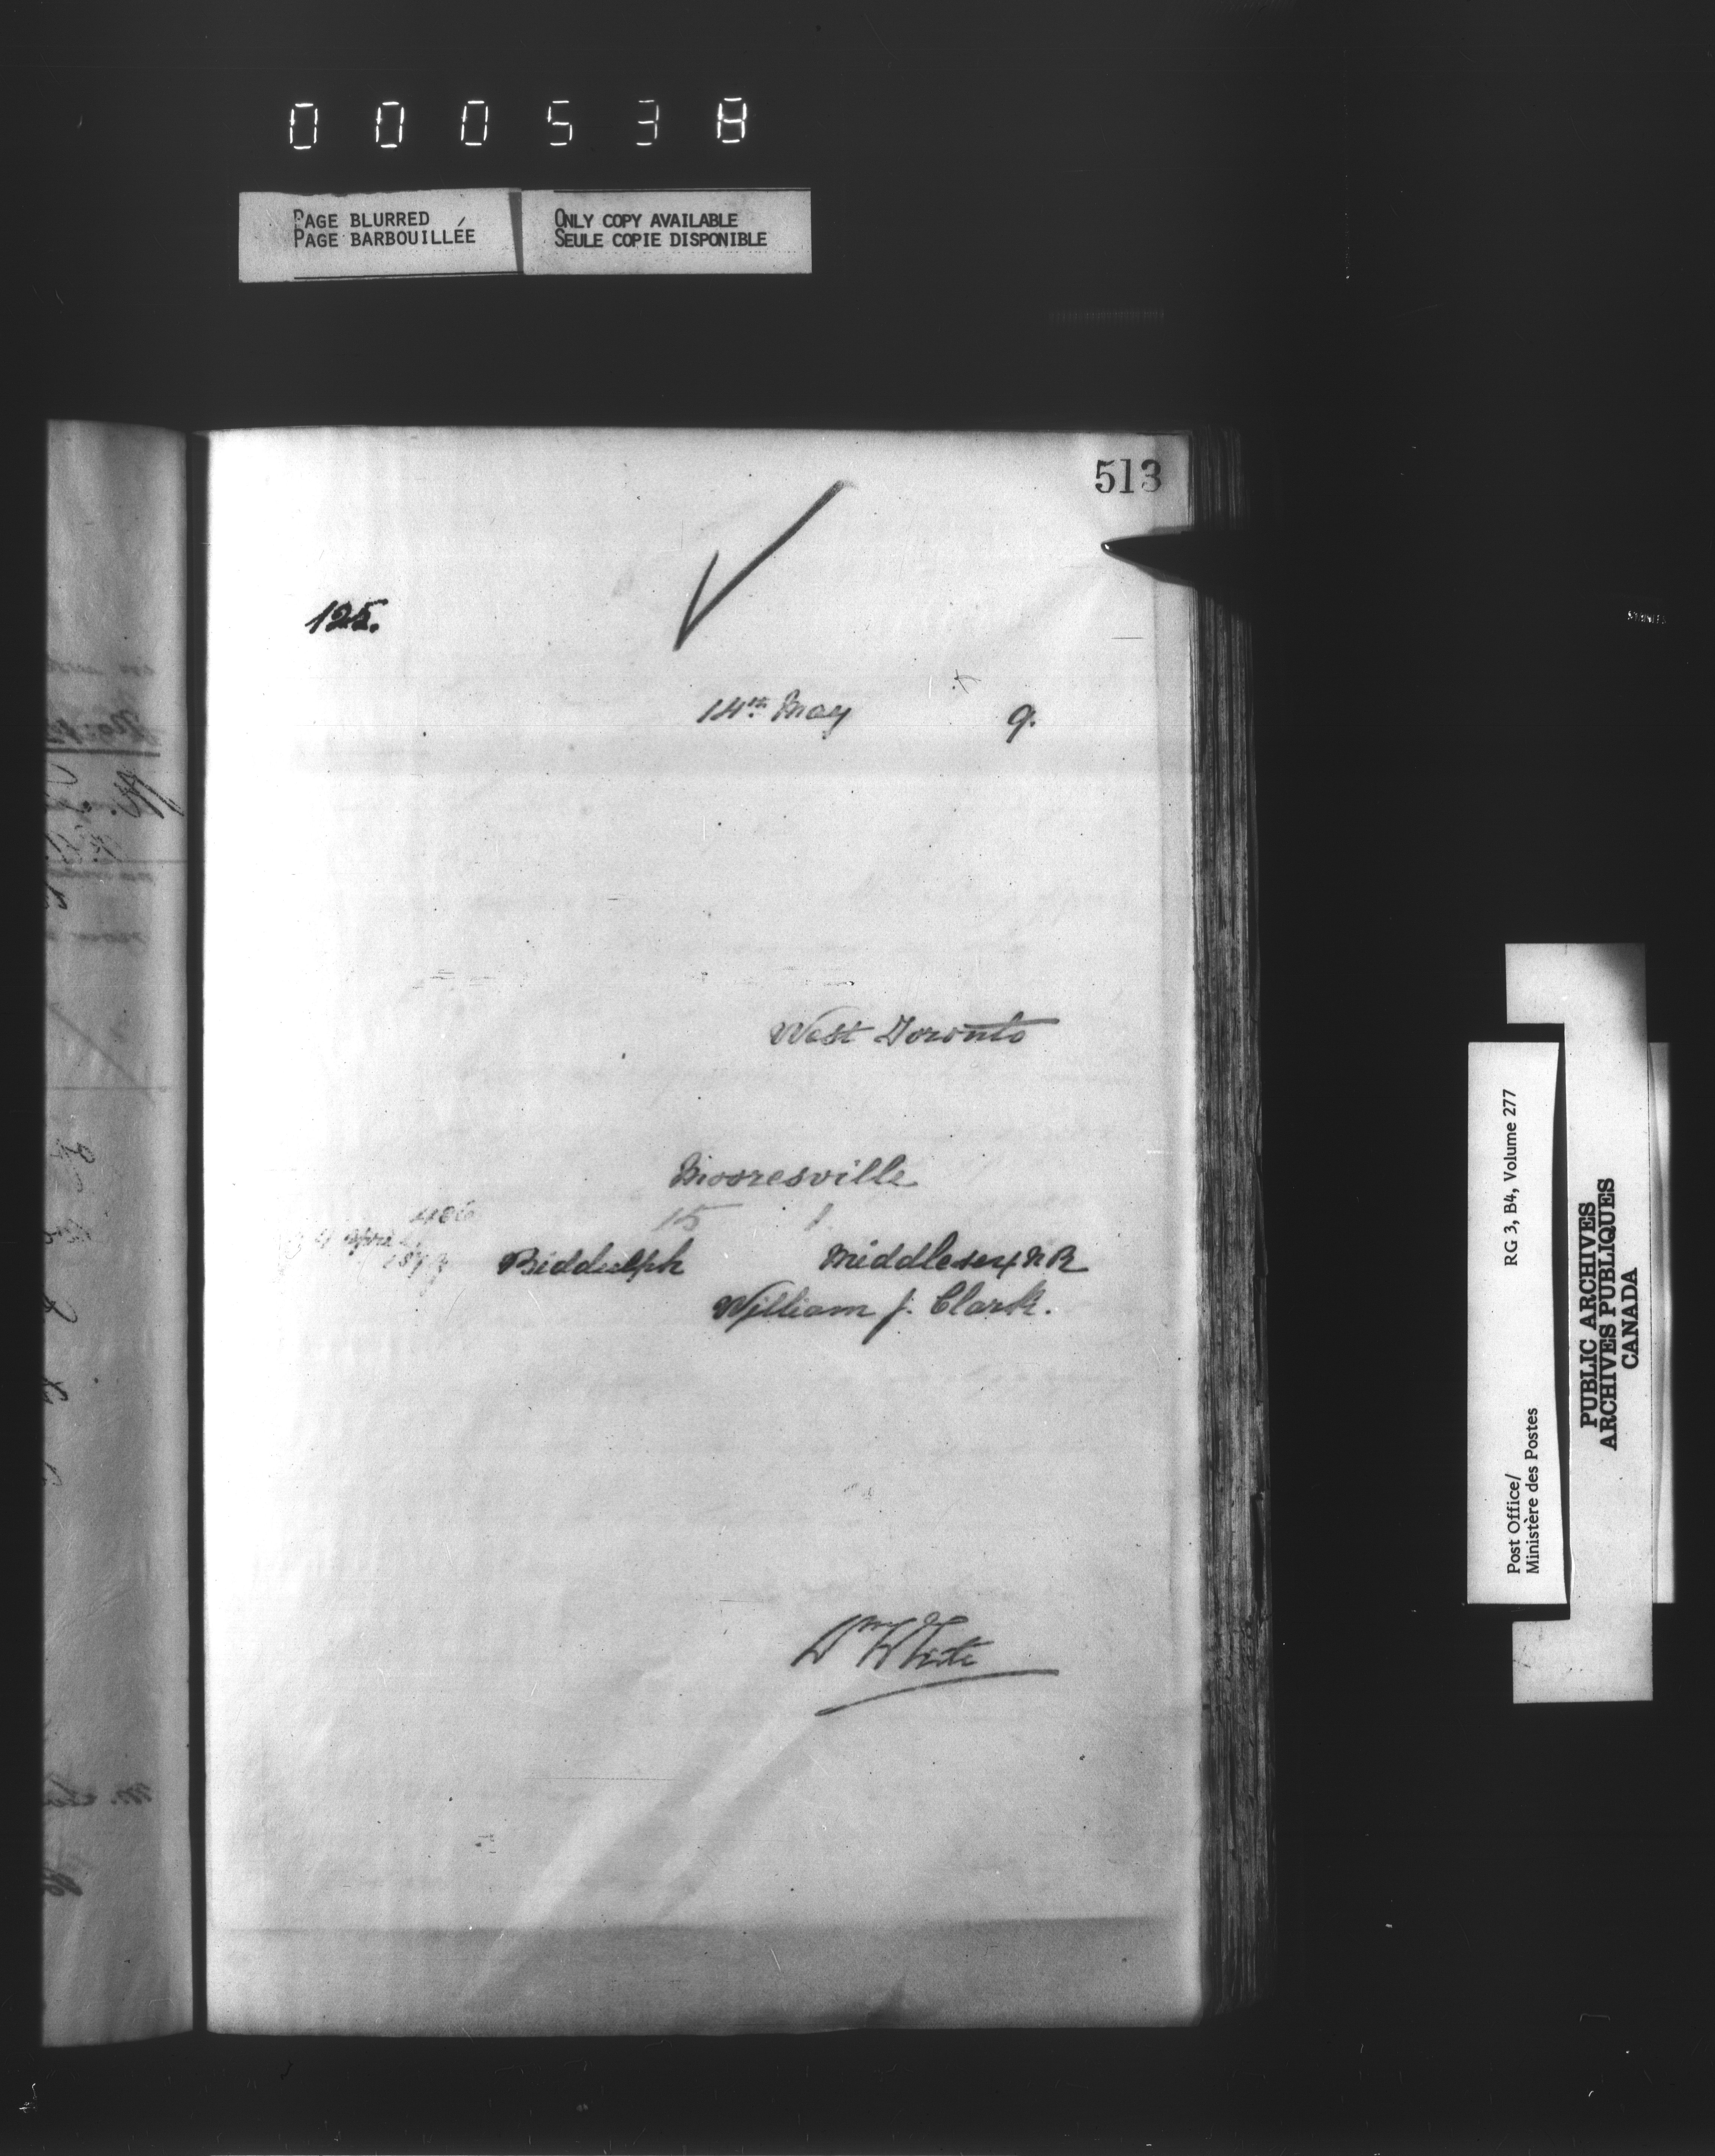 000538
PAGE BLURRED
PAGE BARBOUILLÉE
ONLY COPY AVAILABLE
SEULE COPIE DISPONIBLE
513
125.
14th May 9.
West Toronto
Mooresville
15 1
Biddulph Middlesex N R
William J. Clark.
Wm White
RG 3, B4, Volume 277
Post Office/
Ministère des Postes
PUBLIC ARCHIVES
ARCHIVES PUBLIQUES
CANADA